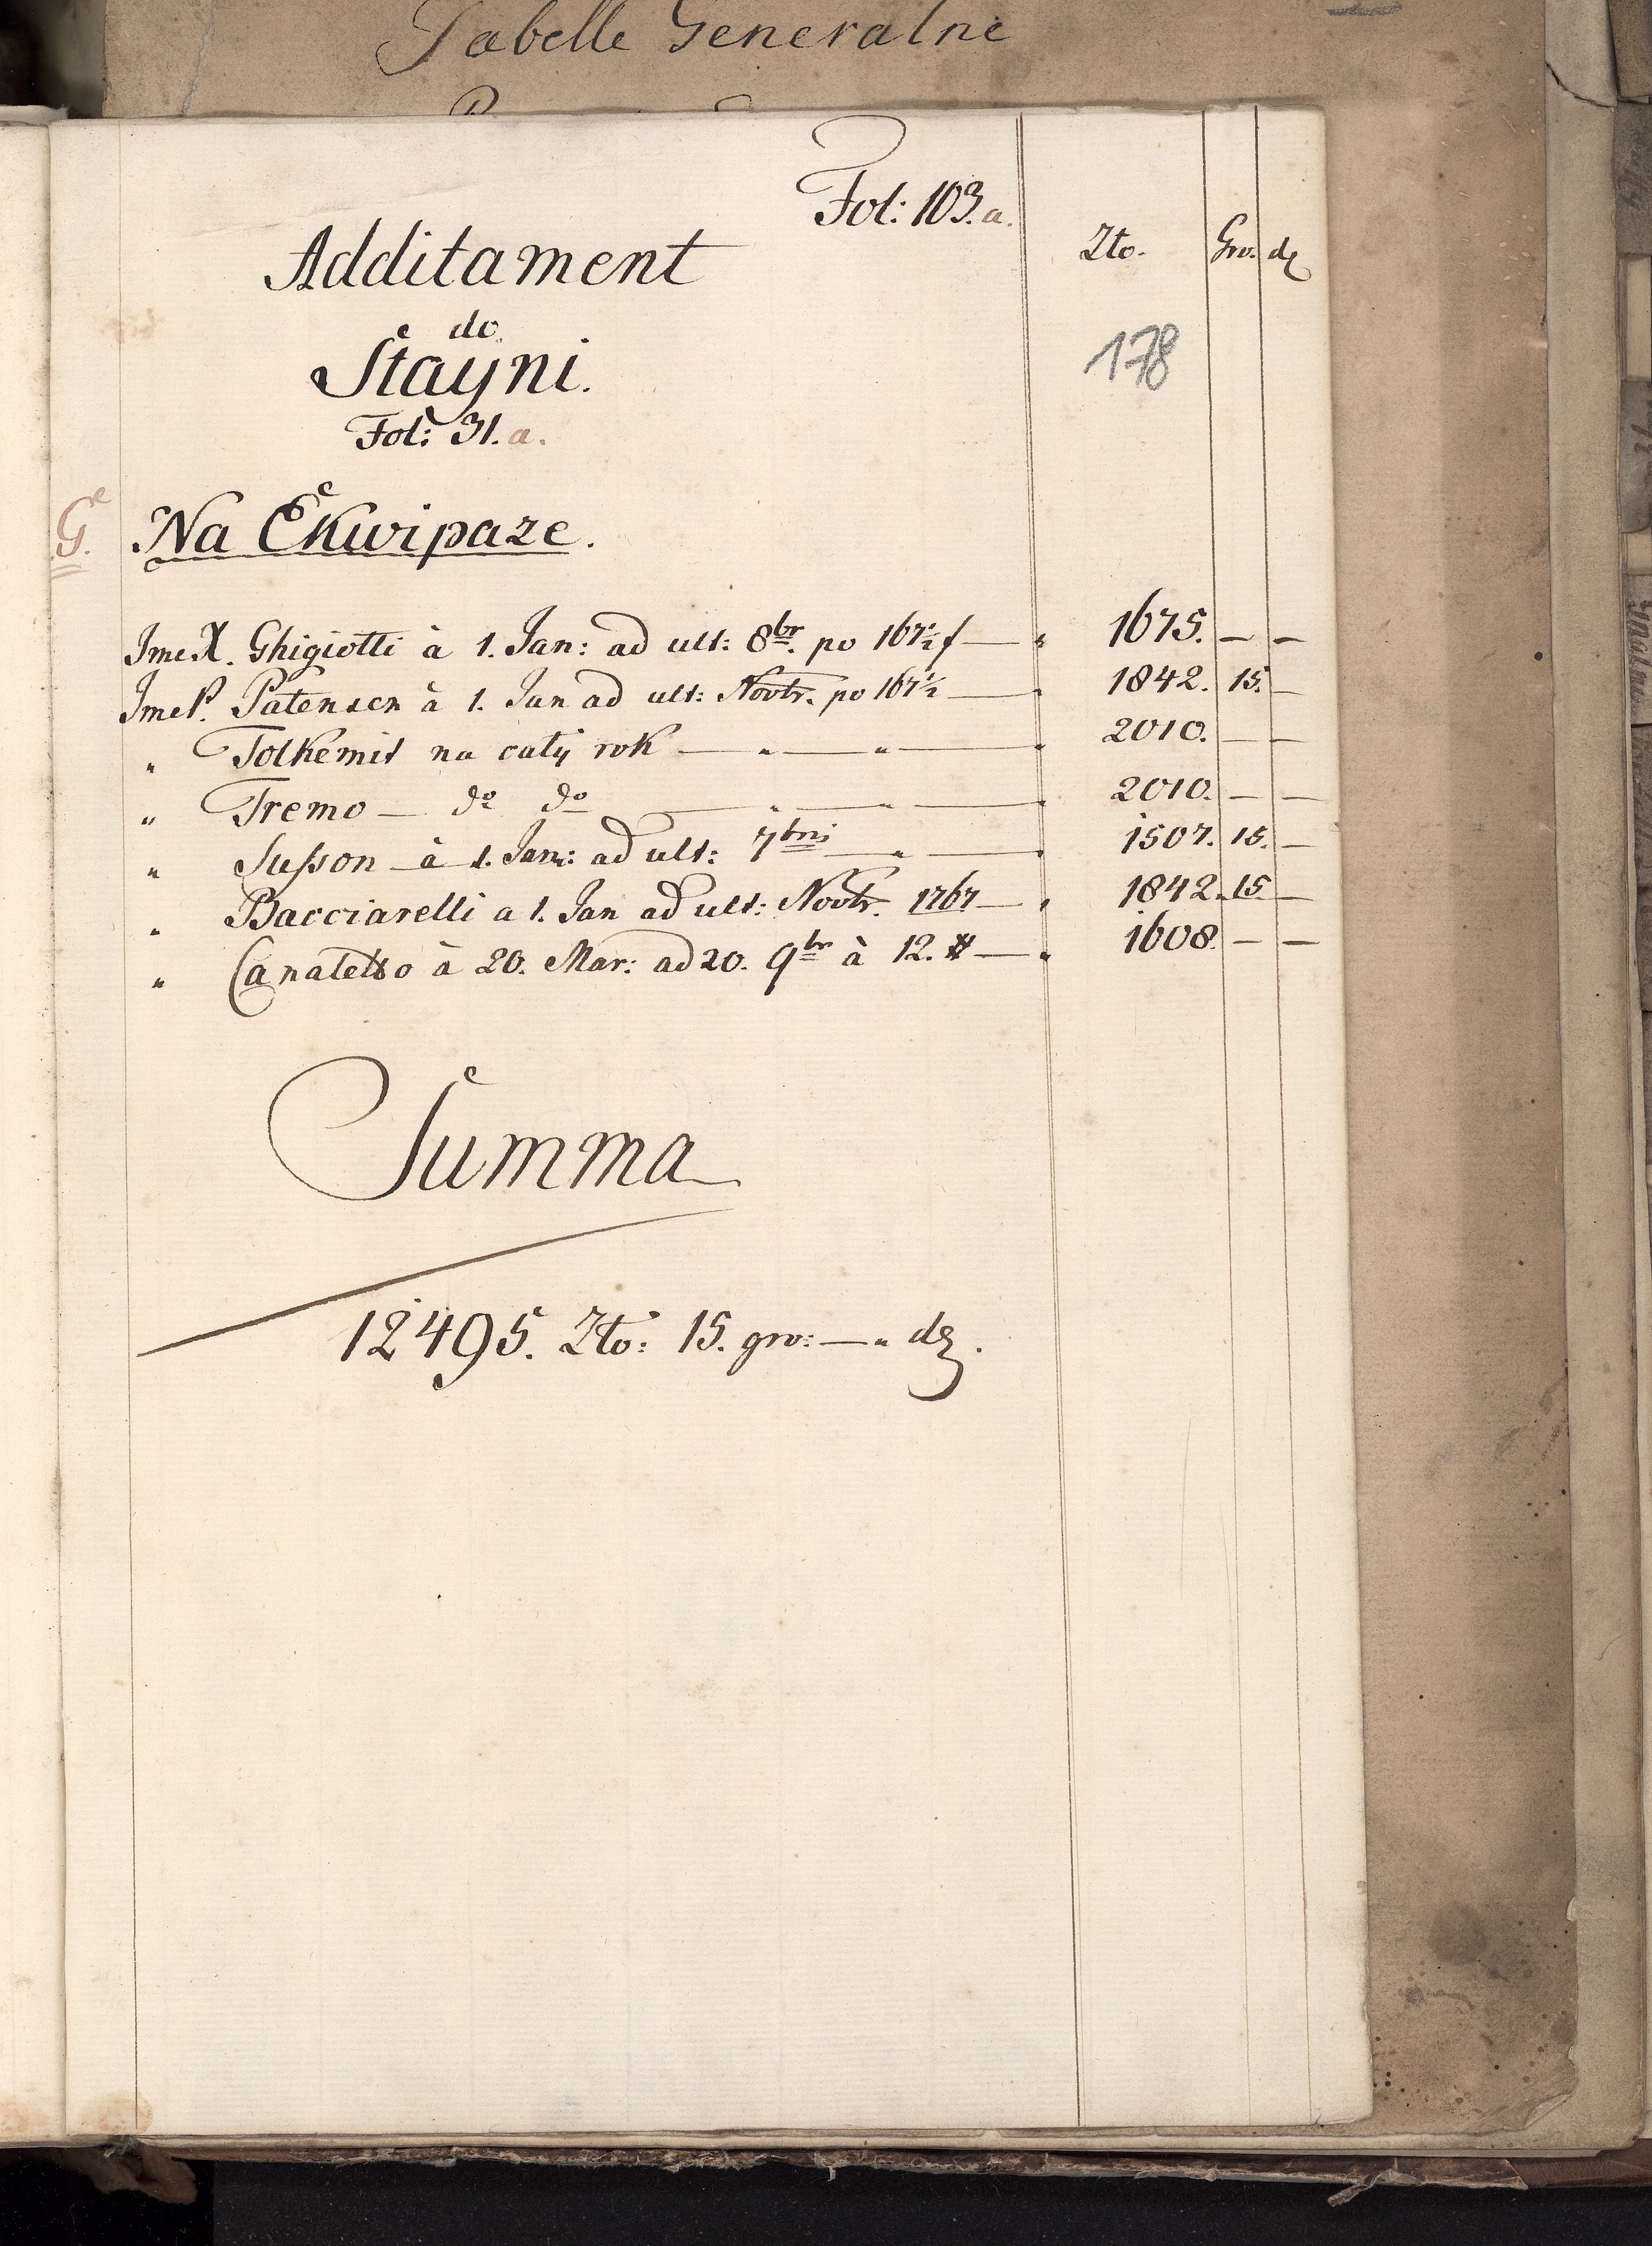 Tabelle Generalne
Fol: 103. a.
Additament
do
Stayni.
Fol: 31. a.
Zło. Gro. d
178
G. Na Ekwipaze.
JmcX. Ghigiotti à 1. Jan: ad ult: 8br. po 167½ f — " 1675. — —
JmcP. Patensen à 1. Jan ad ult: Novbr. po 167½ — " 1842. 15. —
" Tolkemit na cały rok — " — " — " 2010. — —
" Tremo — do do — " — " — " 2010. — —
" Susson — à 1. Jan: ad ult: 7bris — " — " 1507. 15. —
" Bacciarelli a 1. Jan ad ult: Novbr. 1767 — " 1842. 15. —
" Canaletto à 20. Mar: ad 20. 9br à 12. # — " 1608. — —
Summa
12495. Zło: 15. gro: — " d.